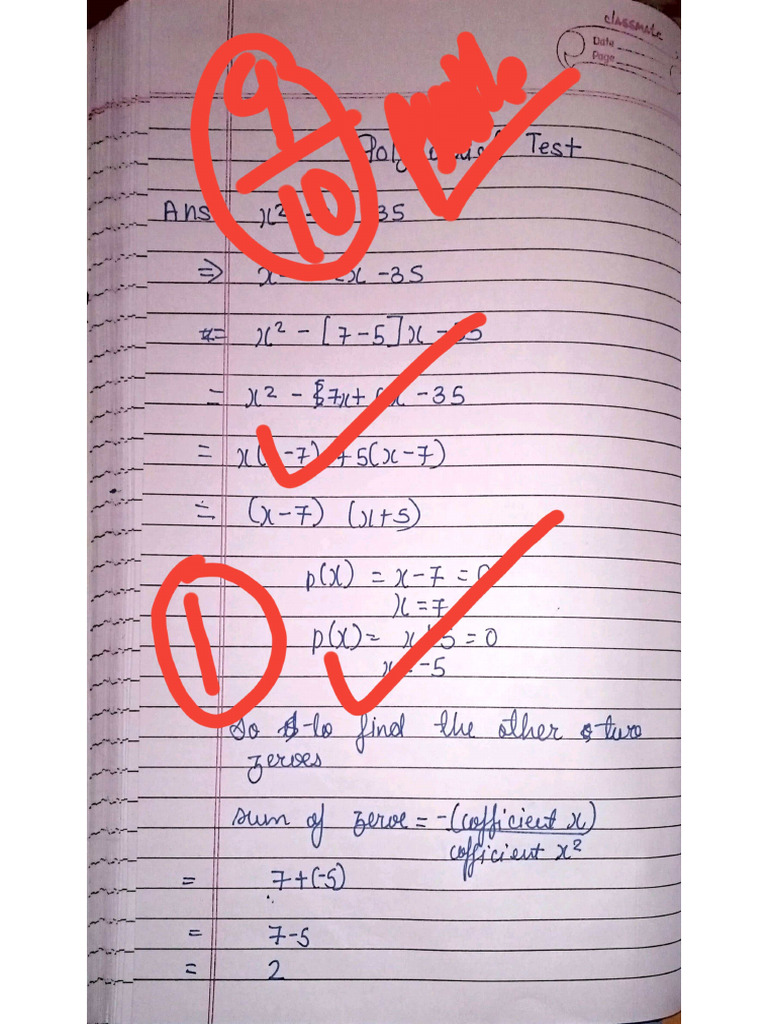 classmate
Date
Page
9/10
Test
Ans x² 35
⇒ x -35
= x² - [7-5]x -
= x² - 7x+ x - 35
= x( -7) +5(x-7)
= (x-7) (x+5)
p(x) = x-7 = 0
x = 7
1
p(x) = x+5 = 0
x = -5
so to find the other two
zeroes
sum of zeroe = -(cofficient x)
cofficient x²
= 7+(-5)
= 7-5
= 2